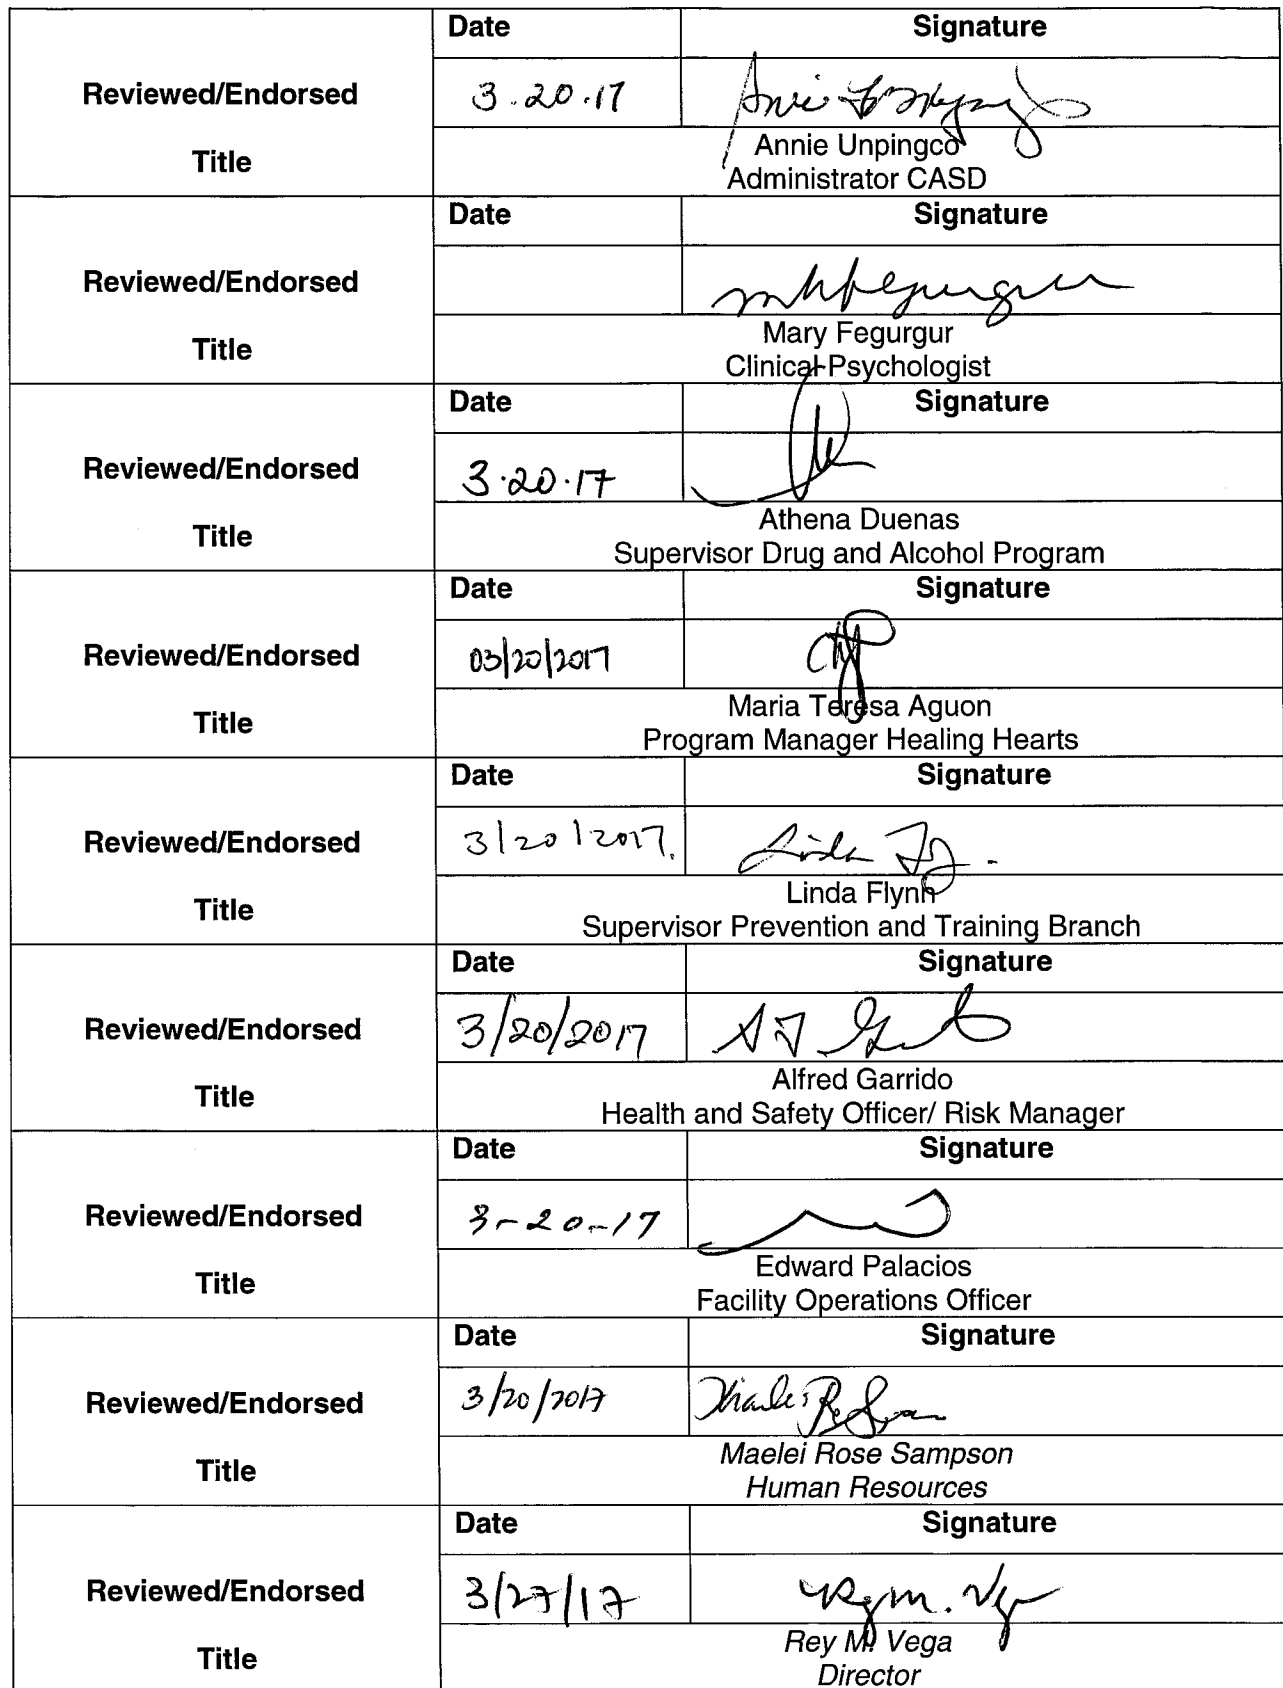 Date Signature
Reviewed/Endorsed 3.20.17
Annie Unpingco
Title
Administrator CASD
Date Signature
Reviewed/Endorsed
Mary Fegurgur
Title
Clinical Psychologist
Date Signature
Reviewed/Endorsed 3.20.17
Athena Duenas
Title
Supervisor Drug and Alcohol Program
Date Signature
Reviewed/Endorsed 03/20/2017
Maria Teresa Aguon
Title
Program Manager Healing Hearts
Date Signature
Reviewed/Endorsed 3/20/2017.
Linda Flynn
Title
Supervisor Prevention and Training Branch
Date Signature
Reviewed/Endorsed 3/20/2017
Alfred Garrido
Title
Health and Safety Officer/ Risk Manager
Date Signature
Reviewed/Endorsed 3-20-17
Edward Palacios
Title
Facility Operations Officer
Date Signature
Reviewed/Endorsed 3/20/2017
Maelei Rose Sampson
Title
Human Resources
Date Signature
Reviewed/Endorsed 3/27/17
Rey M. Vega
Title
Director